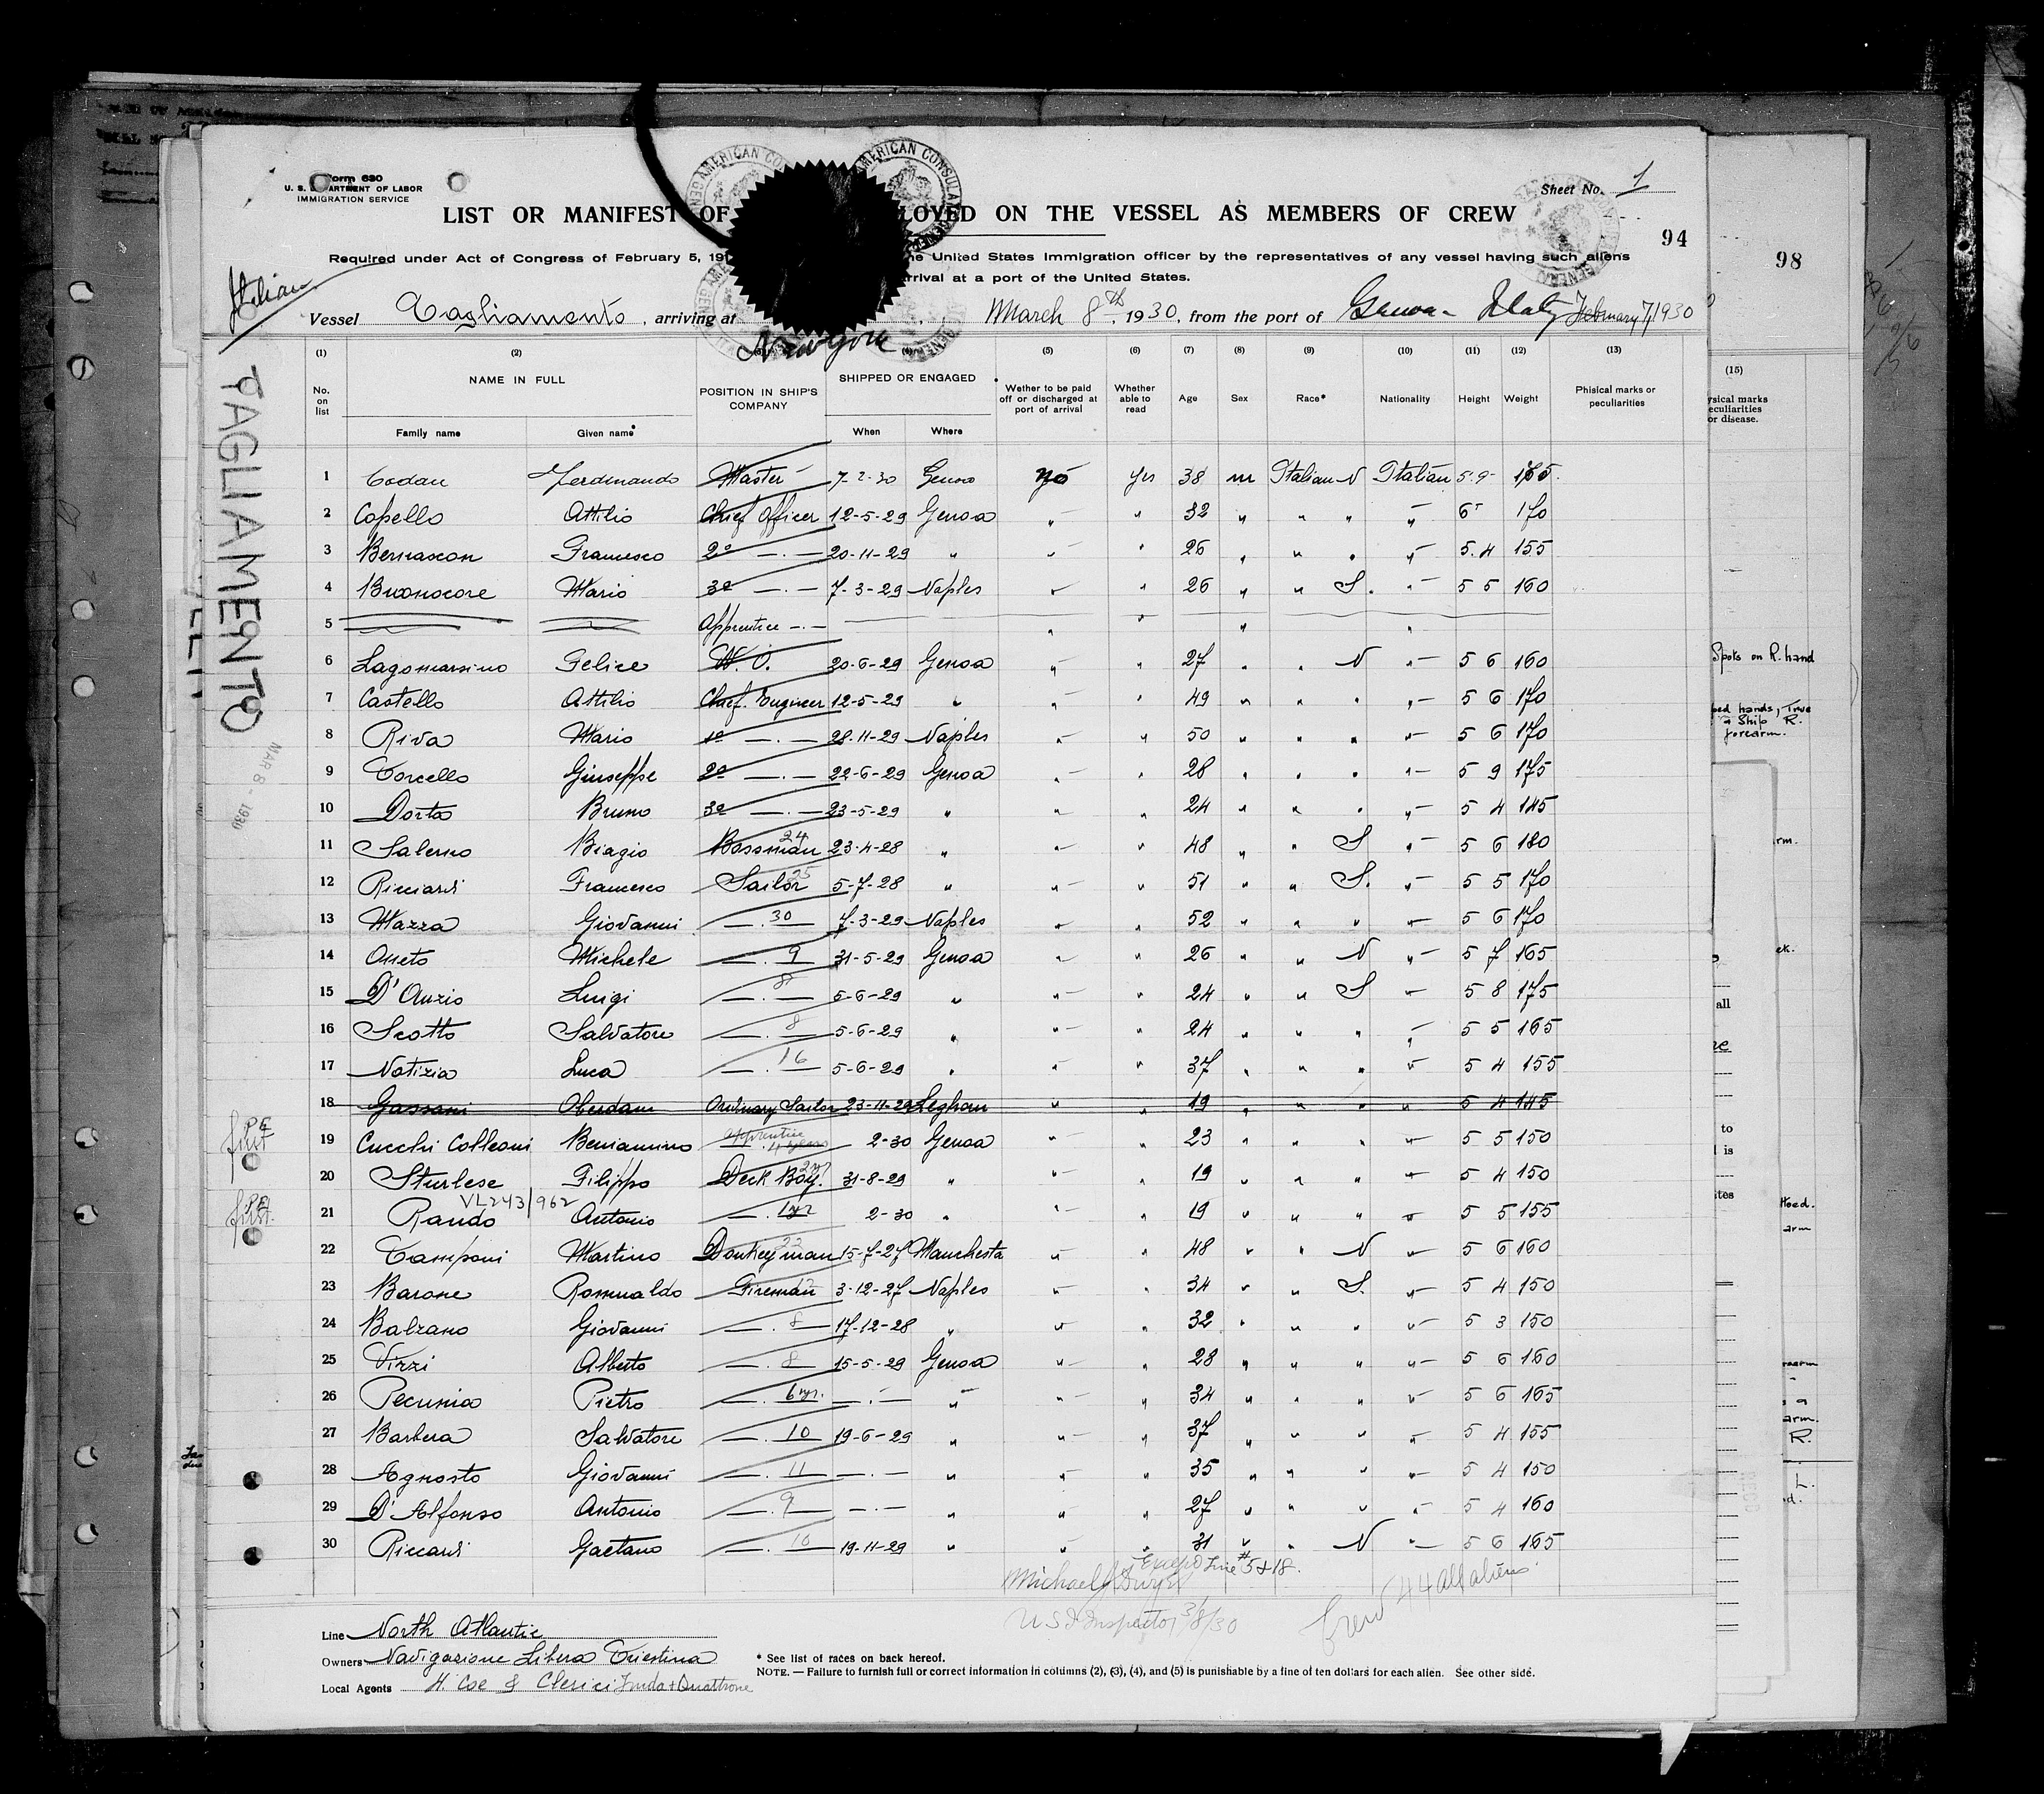 Form 630
U. S. DEPARTMENT OF LABOR
IMMIGRATION SERVICE
Sheet No. 1
LIST OR MANIFEST OF LOYED ON THE VESSEL AS MEMBERS OF CREW
94
98
Required under Act of Congress of February 5, 191 he United States Immigration officer by the representatives of any vessel having such aliens
rrival at a port of the United States.
Italian
Vessel Tagliamento, arriving at New York March 8th, 1930, from the port of Genoa - Italy February 7/1930
(1) (2) (4) (5) (6) (7) (8) (9) (10) (11) (12) (13) (15)
No. on list NAME IN FULL Family name Given name POSITION IN SHIP'S COMPANY SHIPPED OR ENGAGED When Where Wether to be paid off or discharged at port of arrival Whether able to read Age Sex Race* Nationality Height Weight Phisical marks or peculiarities
ysical marks
eculiarities
or disease.
TAGLIAMENTO
MAR 8 - 1930
1 Codan Ferdinando Master 7-2-30 Genoa no yes 38 m Italian N Italian 5-9
2 Capello Attilio Chief Officer 12-5-29 Genoa " " 32 " " " " 6 170
3 Francesco 2º —.— 20-11-29 " " " 26 " " " " 5.4 155
4 Buonocore Mario 3º —.— 7-3-29 Naples " " 26 " " S. " 5 5 160
5 Apprentice —.— " " " "
6 Lagomarsino Felice W. O. 20-6-29 Genoa " " 27 " " N " 5 6 160
7 Castello Attilio Chief Engineer 12-5-29 " " " 49 " " " " 5 6 170
8 Riva Mario 1º —.— 28-11-29 Naples " " 50 " " " " 5 6 170
9 Torcello Giuseppe 2º —.— 22-6-29 Genoa " " 28 " " " " 5 9 175
10 Dorta Bruno 3º —.— 23-5-29 " " " 24 " " " " 5 4 145
11 Salerno Biagio Bossman 24 23-4-28 " " " 48 " " S " 5 6 180
12 Ricciardi Francesco Sailor 25 5-7-28 " " " 51 " " S. " 5 5 170
13 Mazza Giovanni —. 30 — 7-3-29 Naples " " 52 " " " " 5 6 170
14 Oneto Michele —. 9 — 31-5-29 Genoa " " 26 " " N " 5 7 165
15 D'Anzio Luigi —. 8 — 5-6-29 " " " 24 " " S " 5 8 175
16 Scotto Salvatore —. 8 — 5-6-29 " " " 24 " " " " 5 5 165
17 Notizia Luca —. 16 — 5-6-29 " " " 37 " " " " 5 4 155
18 Gassani Oberdam Ordinary Sailor 23-11-29 Leghorn " " 19 " " " " 5 4 145
first 19 Cucchi Colleoni Beniamino apprentice 4 years 2-30 Genoa " " 23 " " " " 5 5 150
20 Sturlese Filippo Deck Boy. 2yr 31-8-29 " " " 19 " " " " 5 4 150
VL243/962
first 21 Rando Antonio —. 1yr 2-30 " " " 19 " " " " 5 5 155
22 Tamponi Martino Donkeyman 22 15-7-27 Manchesta " " 48 " " N " 5 6 160
23 Barone Romualdo Fireman 12 3-12-27 Naples " " 34 " " S. " 5 4 150
24 Balzano Giovanni —. 8 — 17-12-28 " " " 32 " " " " 5 3 150
25 Virzi Alberto —. 8 — 15-5-29 Genoa " " 28 " " " " 5 6 160
26 Pecunia Pietro —. 6 yr. —.— " " " 34 " " " " 5 6 165
27 Barbera Salvatore —. 10 19-6-29 " " " 37 " " " " 5 4 155
28 Agnosto Giovanni —. 11 —.— " " " 35 " " " " 5 4 150
29 D'Alfonso Antonio —. 9 —.— " " " 27 " " " " 5 4 160
30 Riccardi Gaetano —. 10 19-11-29 " " " 31 " " N " 5 6 165
Except Line # 5 & 18.
Michael J Dwyer
U S I Inspector 3/8/30
Crew 44 all aliens
Line North Atlantic
Owners Navigazione Libera Triestina
Local Agents H. Coe & Clerici
* See list of races on back hereof.
NOTE. — Failure to furnish full or correct information in columns (2), (3), (4), and (5) is punishable by a fine of ten dollars for each alien. See other side.
Spots on R. hand
hands, True
a Ship R.
forearm.
rm.
ek.
all
to
is
ites
arm
arm.
R.
L.